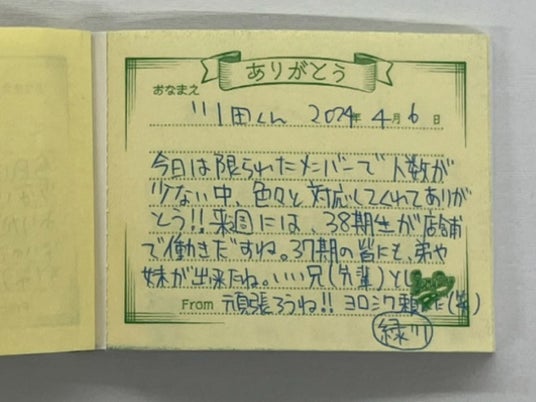 ありがとう
おなまえ
川田くん 2024年4月6日
今日は限られたメンバーで人数が
少ない中、色々と対応してくれてありが
とう!!来週には、38期生が店舗
で働きだすね。37期の皆にも、弟や
妹が出来たね。いい兄(先輩)とし
From 頑張ろうね!! ヨロシク(笑)
緑川